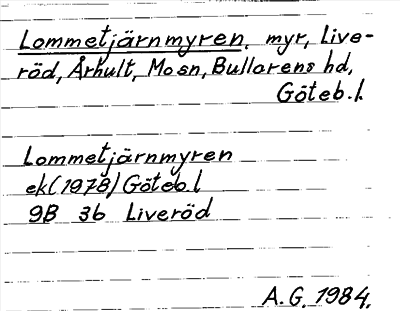 Lommetjärnmyren, myr, Live-
röd, Århult, Mo sn, Bullarens hd,
Göteb. l.
Lommetjärnmyren
ek (1978) Göteb. l
9B 3b Liveröd
A.G. 1984.